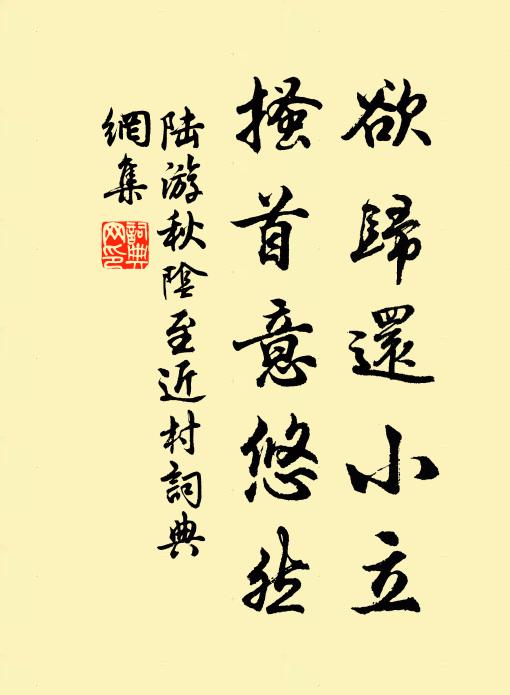 欲歸還小立
搔首意悠然
陸游秋陰至近村詞典
網集
詞典
网印